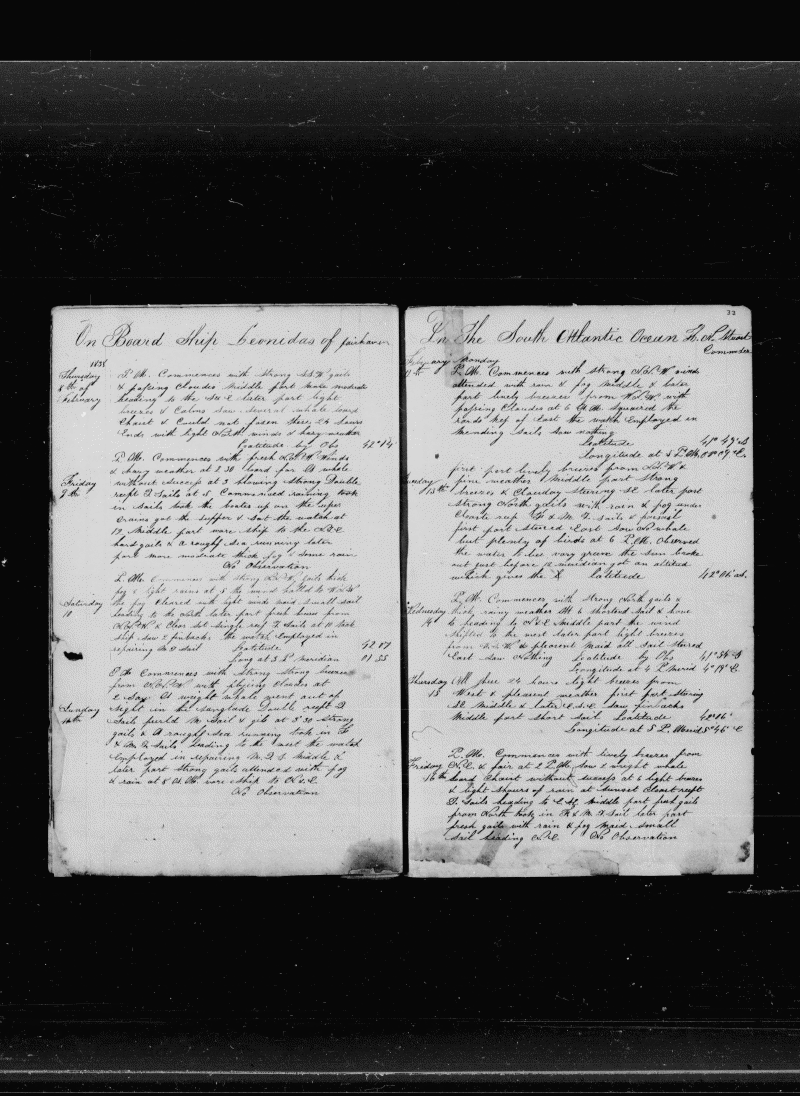 On Board Ship Leonidas of fairhaven
1838
Thursday P.M. Commences with strong S.S.W. gails
8th of & passing Cloudes Middle part more moderate
February heading to the S & E later part light
breezes & Calms saw several whale lowrd
Chaist & Could not fasten These 24 hours
Ends with light North winds & hazy weather
Latitude by Obs 42°14
P.M. Commences with fresh winds
& hazy weather at 2 30 lowrd for A whale
Friday without sucsess at 3 blowing strong Double
9th reeft T Sails at 5 Commensed raining took
in Sails took the boates up on the uper
Cranes got the supper & Sat the watch at
12 Middle part wore ship to the
hard gails & A rough Sea running later
part more moderate thick fog & some rain
No Observation
P.M. Commences with strong gails thick
fog & light rains at 5 the wind
Saturday the fog Cleared with light winds maid small sail
10 heading to the north later part fresh breezes from
& Clear Sat Single reef T Sails at 10 took
ship saw 2 finbacks the watch Employed in
repairing M T Sail Latitude 42 07
Long at 3 P Meridian 01 35
P.M. Commences with strong breezes
from with flying Cloudes at
2 Saw A wright whale went out of
Sunday Sight in the Double reeft T
11th Sails furld M Sail & gib at 5 30 strong
gails & A rough Sea running took in F
& M T Sails heading to the west the watch
Employed in repairing M T S Middle &
later part Strong gails attended with fog
& rain at 8 A.M. wore ship to
No Observation
32
In The South Atlantic Ocean H. N. Stuart
Commder
February Monday
12th P.M. Commences with strong winds
attended with rain & fog Middle & later
part lively breezes from with
passing Cloudes at 6 A.M. squared the
yards kep of East the watch Employed in
mending Sails saw nothing
Latitude 41° 49 S
Longitude at 5 P.M. 01° 09 E
first part lively breezes from &
Tuesday fine weather Middle part Strong
13th breezes & Cloudey Stearing SE later part
Strong North gails with rain & fog under
Close reef F & M T Sails & foresail
first part Steared East Saw No whale
but plenty of birds at 6 P.M. Observed
the water to be very green the sun broke
out just before a meridian got an altitud
which gives the Latitude 42° 06 S.
P.M. Commences with strong North gails &
Wednesday thick, rainy weather At 6 shortend Sail & hove
14 to heading to Middle part the wind
shifted to the west later part light breezes
from & plesent maid all Sail Steared
East Saw Nothing Latitude by Obs 41° 54 S
Longitude at 4 P Merid 4° 18 E
Thursday All these 24 hours light breezes from
15 West & plesent weather first part Stearing
SE Middle & later E.S.E. Saw finbacks
Middle part Short Sail Latitude 42° 06
Longitude at 5 P. Merid 5° 45 E
P.M. Commences with lively breezes from
Friday & fair at 2 P.M. Saw 2 wright whale
16th lowrd Chaist without sucsess at 6 light breezes
& light showrs of rain at Sunset Close reeft
T Sails heading to Middle part fresh gails
from North took in F & M T Sail later part
fresh gails with rain & fog maid small
Sail heading No Observation